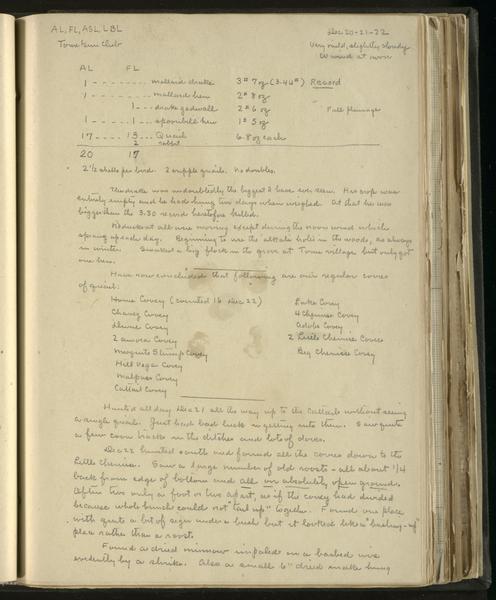 AL, FL, ASL, LBL
Dec 20-21-22
Tome Gun Club
Very mild, slightly cloudy
W wind at noon
AL FL
1 - - - - - - - - mallard drake 3# 7 oz (3.44#) Record
1 - - - - - - - - mallard hen 2# 8 oz
1 - - - drake gadwall 2# 6 oz Full plumage
1 - - - - 1 - - - spoonbill hen 1# 5 oz
17 - - - - 13 - - - Quail 6.8 oz each
2 rabbit
20 17
2 1/2 shells per bird. 2 cripple quails. No doubles.
The drake was undoubtedly the biggest I have ever seen. His crop was
entirely empty and he had hung two days when weighed. At that he was
bigger than the 3.30 record heretofore killed.
No ducks at all were moving except during the noon wind which
sprang up each day. Beginning to use the alkali holes in the woods, as always
in winter. a big flock in the grove at Tome village but only got
one hen.
Have now concluded that following are our regular coveys
of quail:
Home Covey (counted 16 Dec 22) Lake Covey
Chavez Covey 4 Chemise Covey
Covey Adobe Covey
2 Covey 2 Little Chemise Coveys
Mosquito Slump Covey Big Chemise Covey
Hell Vega Covey
Malpais Covey
Cattail Covey
Hunted all day Dec 21 all the way up to the Cattails without seeing
a single quail. Just hard bad luck in getting into them. Saw quite
a few coon tracks in the ditches and lots of doves.
Dec 22 hunted south and found all the coveys down to the
Little Chemise. Saw a large number of old roosts - all about 1/4
back from edge of bottom and all on absolutely open ground.
Often two only a foot or two apart, as if the covey had divided
because whole bunch could not "tail up" together. Found one place
with quite a lot of sign under a bush but it looked like a "bushing-up"
place rather than a roost.
Found a dried minnow impaled on a barbed wire
evidently by a shrike. Also a small 6" dried snake hung